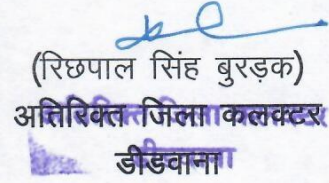 (रिछपाल सिंह बुरड़क)
अतिरिक्त जिला कलक्टर
डीडवाना